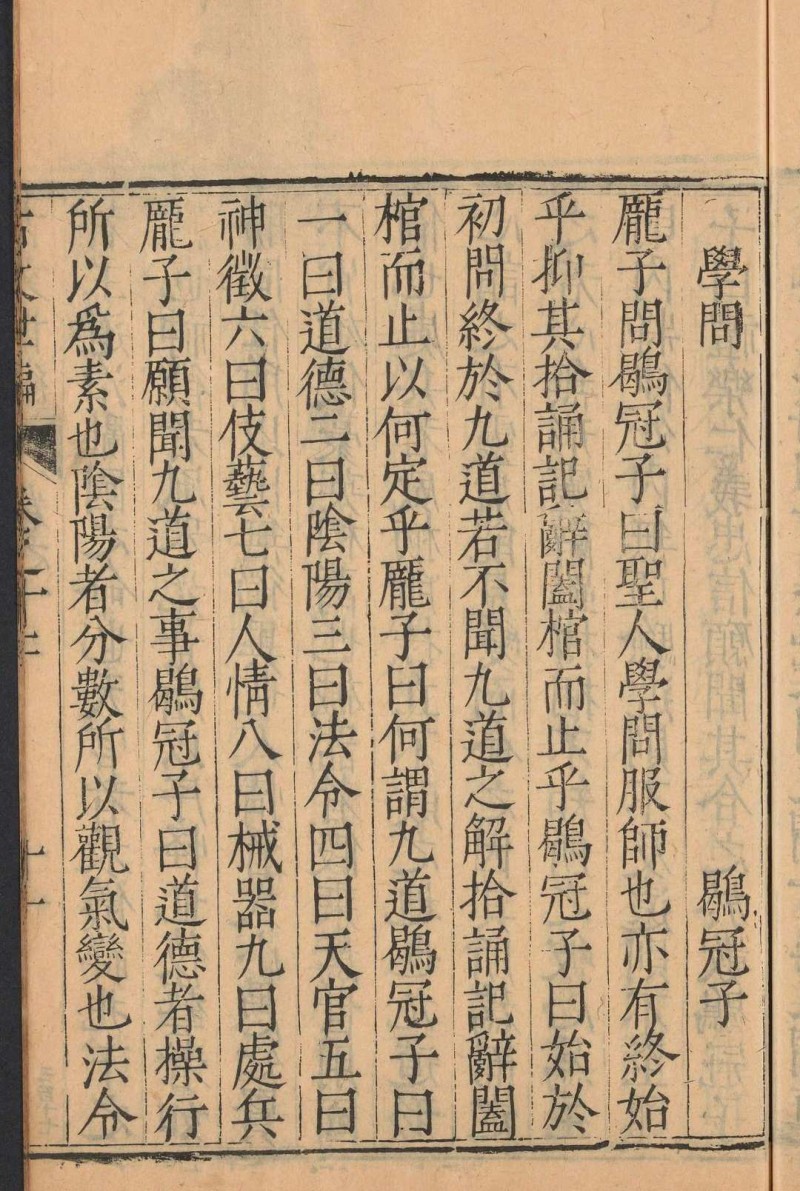 學問　鶡冠子
龐子問鶡冠子曰聖人學問服師也亦有終始
乎抑其拾誦記辭闔棺而止乎鶡冠子曰始於
初問終於九道若不聞九道之解拾誦記辭闔
棺而止以何定乎龐子曰何謂九道鶡冠子曰
一曰道德二曰陰陽三曰法令四曰天官五曰
神徵六曰伎藝七曰人情八曰械器九曰處兵
龐子曰願聞九道之事鶡冠子曰道德者操行
所以爲素也陰陽者分數所以觀氣變也法令